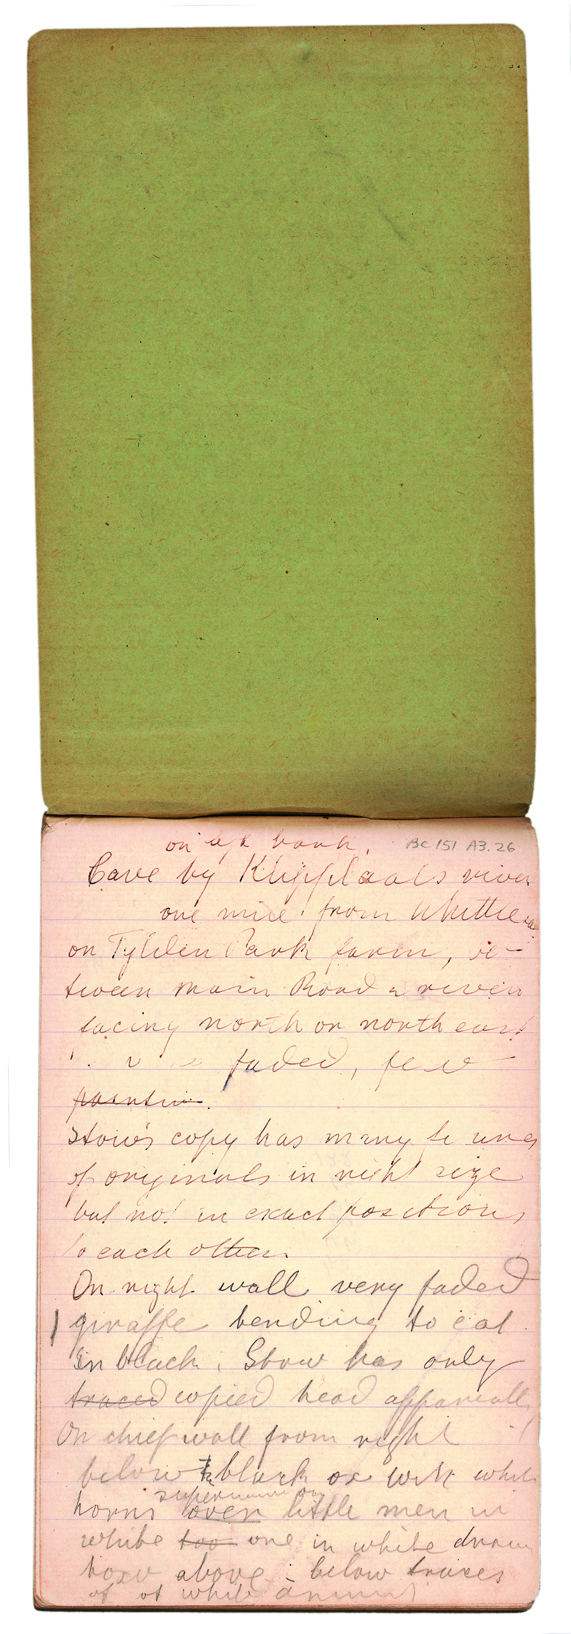 on left bank. BC 151 A3.26
Cave by Klipplaats river
one mile from Whittlesea
on Tylden Park farm, be-
tween main Road & river
facing north or north east
faded, few
paintin.
Stow's copy has many figures
of originals in right size
but not in exact positions
to each other.
On right wall very faded
giraffe bending to eat
in black. Stow has only
traced copied head apparently
On chief wall from right
below black ox with white
horns over little men in
white too one in white drawn
above - below traces
of white animal